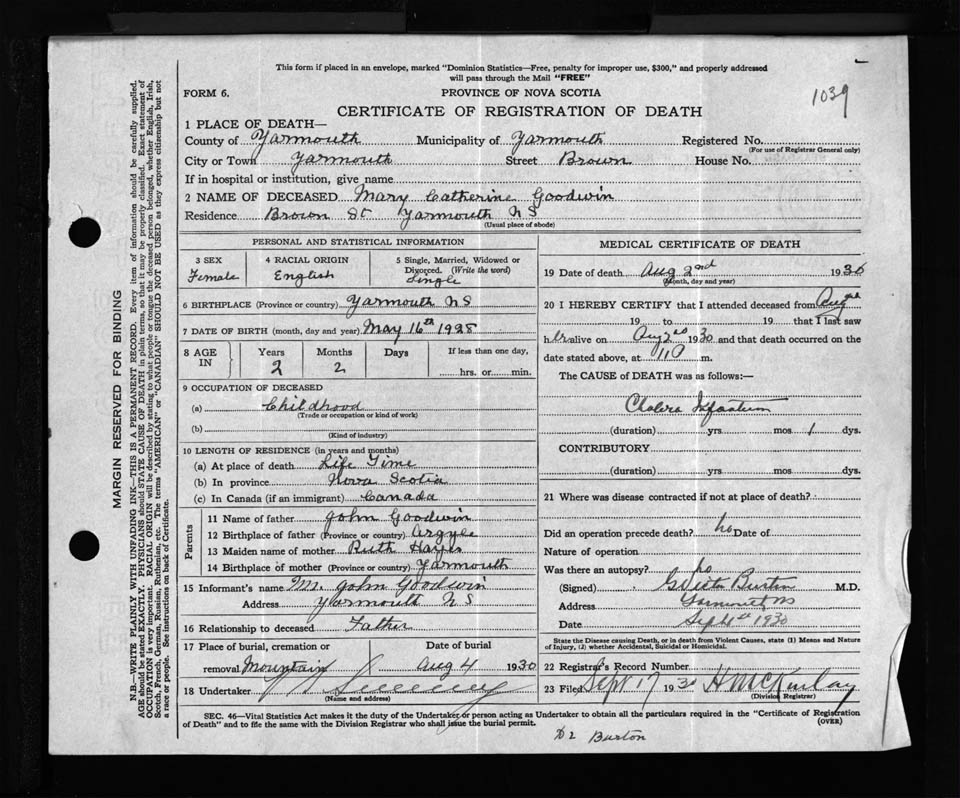 This form if placed in an envelope, marked "Dominion Statistics—Free, penalty for improper use, $300," and properly addressed
will pass through the Mail "FREE"
FORM 6. PROVINCE OF NOVA SCOTIA 1039
CERTIFICATE OF REGISTRATION OF DEATH
1 PLACE OF DEATH—
County of Yarmouth Municipality of Yarmouth Registered No.
(For use of Registrar General only)
City or Town Yarmouth Street Brown House No.
If in hospital or institution, give name
2 NAME OF DECEASED Mary Catherine Goodwin
Residence Brown St Yarmouth NS
(Usual place of abode)
PERSONAL AND STATISTICAL INFORMATION
3 SEX 4 RACIAL ORIGIN 5 Single, Married, Widowed or
Divorced. (Write the word)
Female English Single
6 BIRTHPLACE (Province or country) Yarmouth NS
7 DATE OF BIRTH (month, day and year) May 16th 1928
8 AGE IN Years Months Days If less than one day,
2 2 hrs. or min.
9 OCCUPATION OF DECEASED
(a) Childhood
(Trade or occupation or kind of work)
(b)
(Kind of industry)
10 LENGTH OF RESIDENCE (in years and months)
(a) At place of death Life Time
(b) In province Nova Scotia
(c) In Canada (if an immigrant) Canada
Parents
11 Name of father John Goodwin
12 Birthplace of father (Province or country) Argyle
13 Maiden name of mother Ruth Hayes
14 Birthplace of mother (Province or country) Yarmouth
15 Informant's name M. John Goodwin
Address Yarmouth NS
16 Relationship to deceased Father
17 Place of burial, cremation or Date of burial
removal Mountain Aug 4 1930
18 Undertaker
(Name and address)
MEDICAL CERTIFICATE OF DEATH
19 Date of death Aug 2nd 1930
(Month, day and year)
20 I HEREBY CERTIFY that I attended deceased from Aug
19 to 19 that I last saw
her alive on Aug 2nd 1930 and that death occurred on the
date stated above, at 11 P m.
The CAUSE of DEATH was as follows:—
Cholera Infantum
(duration) yrs mos 1 dys.
CONTRIBUTORY
(duration) yrs mos dys.
21 Where was disease contracted if not at place of death?
Did an operation precede death? no Date of
Nature of operation
Was there an autopsy? no
(Signed) Burton M.D.
Address Yarmouth NS
Date Sept 1930
State the Disease causing Death, or in death from Violent Causes, state (1) Means and Nature
of Injury, (2) whether Accidental, Suicidal or Homicidal.
22 Registrar's Record Number
23 Filed Sept 17 1930 H McKinlay
(Division Registrar)
SEC. 46—Vital Statistics Act makes it the duty of the Undertaker or person acting as Undertaker to obtain all the particulars required in the "Certificate of Registration
of Death" and to file the same with the Division Registrar who shall issue the burial permit. (OVER)
Dr Burton
MARGIN RESERVED FOR BINDING
N.B.—WRITE PLAINLY WITH UNFADING INK—THIS IS A PERMANENT RECORD. Every item of information should be carefully supplied.
AGE should be stated EXACTLY. PHYSICIANS should STATE CAUSE OF DEATH in plain terms, so that it may be properly classified. Exact statement of
OCCUPATION is very important. RACIAL ORIGIN will be described by stating to what people or tongue the deceased person belonged, whether English, Irish,
Scotch, French, German, Russian, Ruthenian, etc. The terms "AMERICAN" or "CANADIAN" SHOULD NOT BE USED as they express citizenship but not
a race or people. See instructions on back of Certificate.